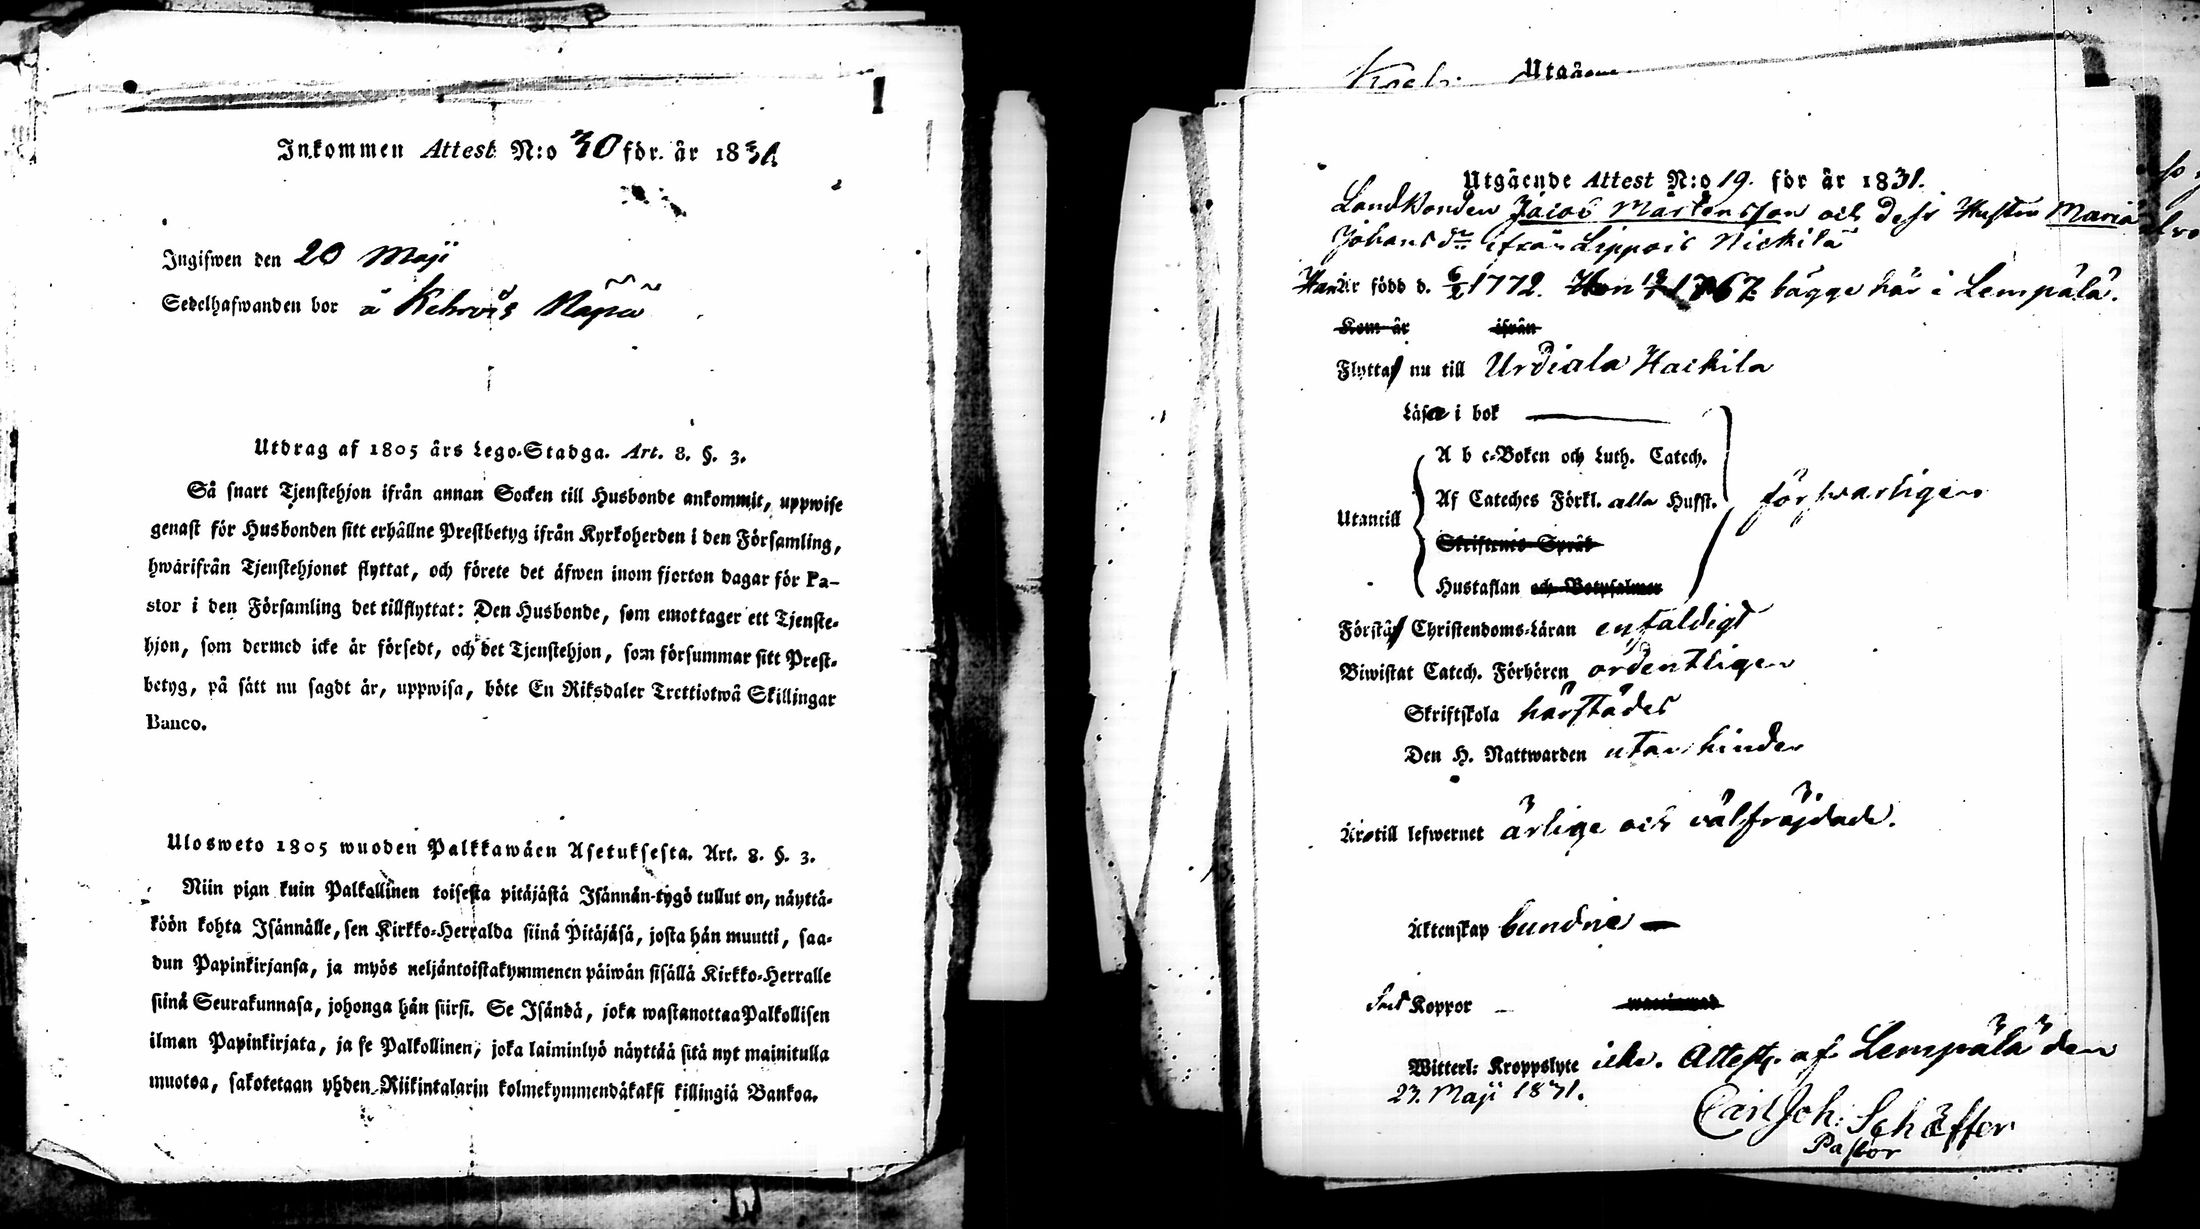 Inkommen Attest N:o 30 för. år 1831
Ingifwen den 20 Maji
Sedelhafwanden bor å
Utdrag af 1805 års Lego-Stadga. Art. 8. §. 3.
Så snart Tjenstehjon ifrån annan Socken till Husbonde ankommit, uppwise
genast för Husbonden sitt erhållne Prestbetyg ifrån Kyrkoherden i den Församling,
hwarifrån Tjenstehjonet flyttat, och förete det äfwen inom fjorton dagar för Pa-
stor i den Församling det tillflyttat: Den Husbonde, som emottager ett Tjenste-
hjon, som dermed icke är försedt, och det Tjenstehjon, som försummar sitt Prest-
betyg, på sätt nu sagdt är, uppwisa, böte En Riksdaler Trettiotwå Skillingar
Banco.
Ulosweto 1805 wuoden Palkkawäen Asetuksesta. Art. 8. §. 3.
Niin pian kuin Palkollinen toisesta pitäjästä Isännän-tygö tullut on, näyttä-
köön kohta Isännälle, sen Kirkko-Herralda siinä Pitäjäsä, josta hän muutti, saa-
dun Papinkirjansa, ja myös neljäntoistakymmenen päiwän sisällä Kirkko-Herralle
siinä Seurakunnasa, johonga hän siirsi. Se Isändä, joka wastanottaa Palkollisen
ilman Papinkirjata, ja se Palkollinen, joka laiminlyö näyttää sitä nyt mainitulla
muotoa, sakotetaan yhden Riikintalarin kolmekymmendäkaksi killingiä Bankoa.
Utgående
Utgående Attest N:o 19. för år 1831.
Landbonden Jacob Mårtensson och dess Hustru Maria
Johansdr ifrån Lippois Nickilä
Han Är född d. 6/2 1772. Hon 1767 bägge här i Lempälä.
Kom år ifrån
Flytta nu till Urdiala Haikila
Läsa i bok
A b c-Boken och Luth. Catech.
Utantill Af Cateches Förkl. alla Hufst. försvarligen
Skriftenes Språk
Hustaflan och Botpsalmer
Förstå Christendoms-Läran enfaldigt
Biwistat Catech. Förhören ordentligen
Skriftskola härstädes
Den H. Nattwarden utan hinder
Äro till lefwernet ärlige och välfräjdade.
Äktenskap bundne
Koppor
Witterl: Kroppslyte icke. Attest. af Lempälä den
23. Maji 1831.
Carl Joh: Schæffer
Pastor